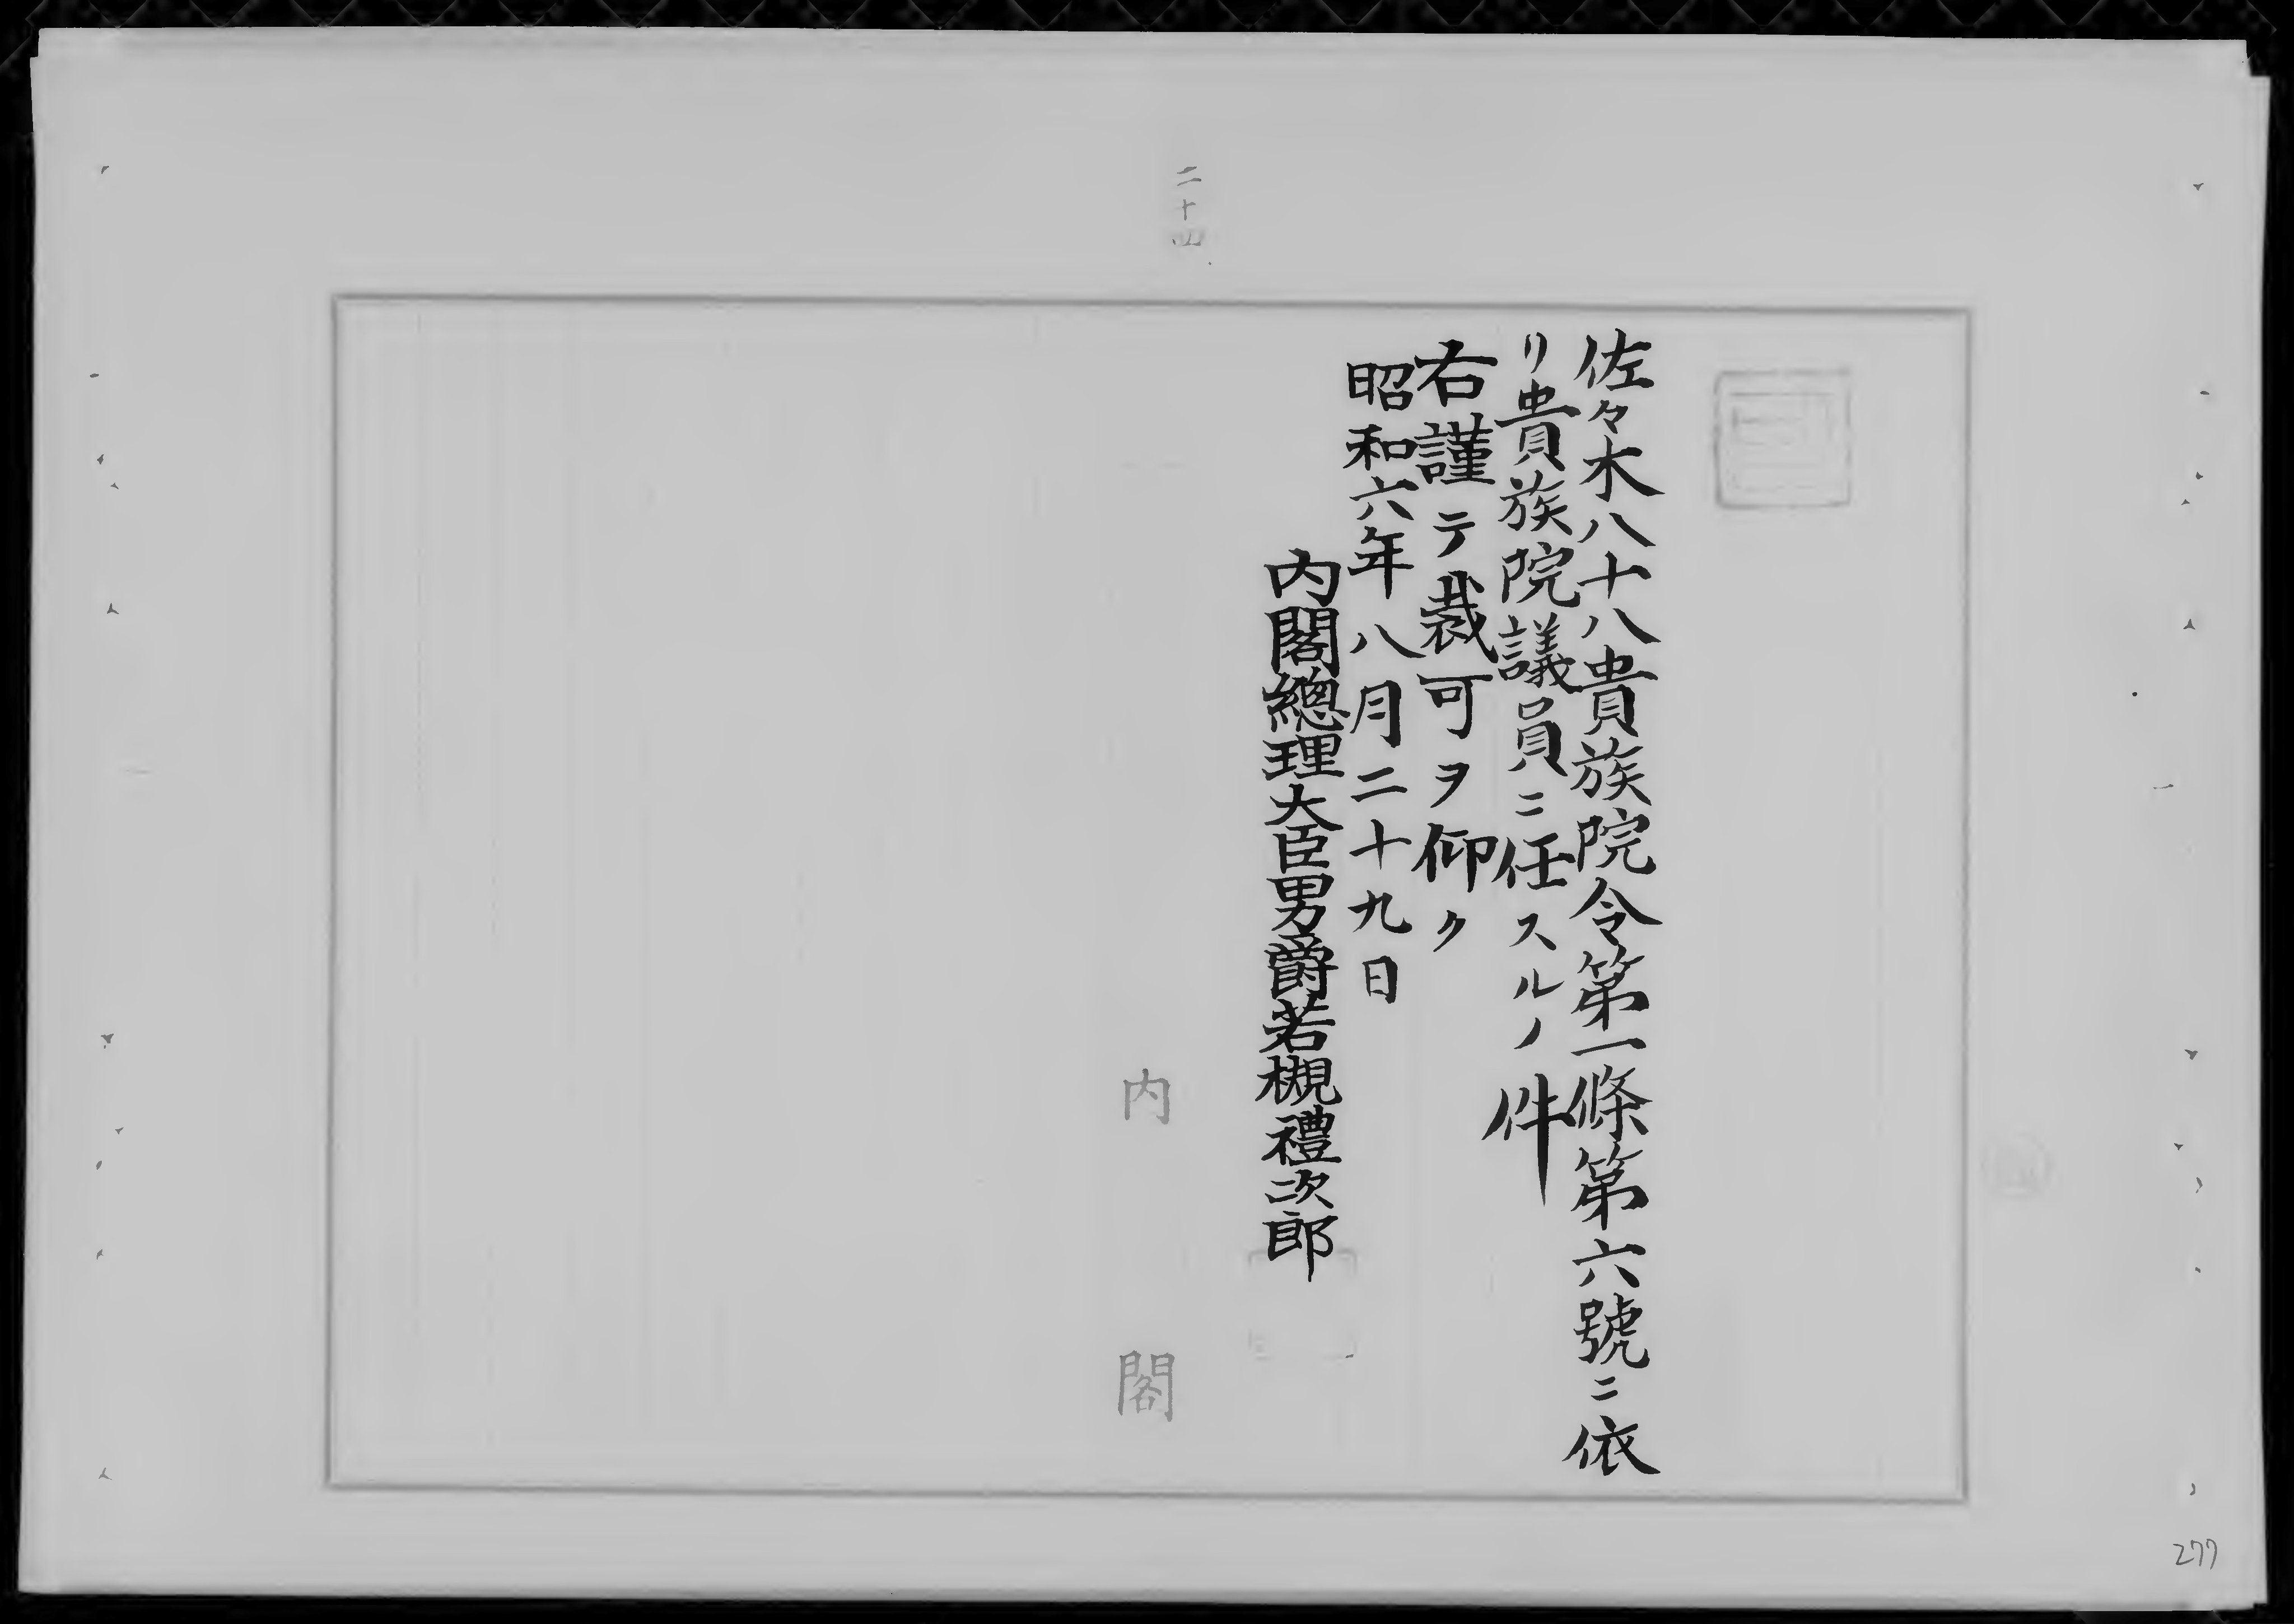 二十四
佐々木八十八貴族院令第一條第六號ニ依
リ貴族院議員ニ任スルノ件
右謹テ裁可ヲ仰ク
昭和六年八月二十九日
内閣總理大臣男爵若槻禮次郎
内閣
277